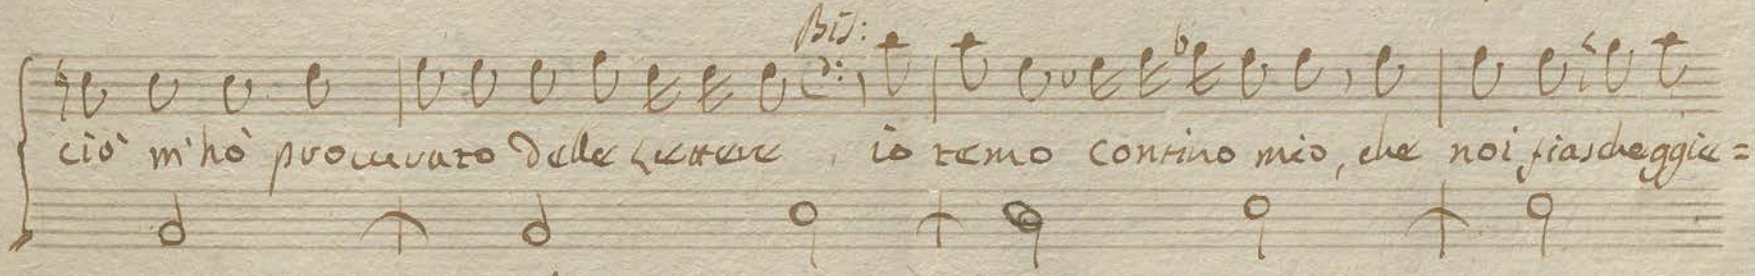 Bis:
ciò m'hò procurato delle Lettere, io temo contino mio, che noi fiascheggie=